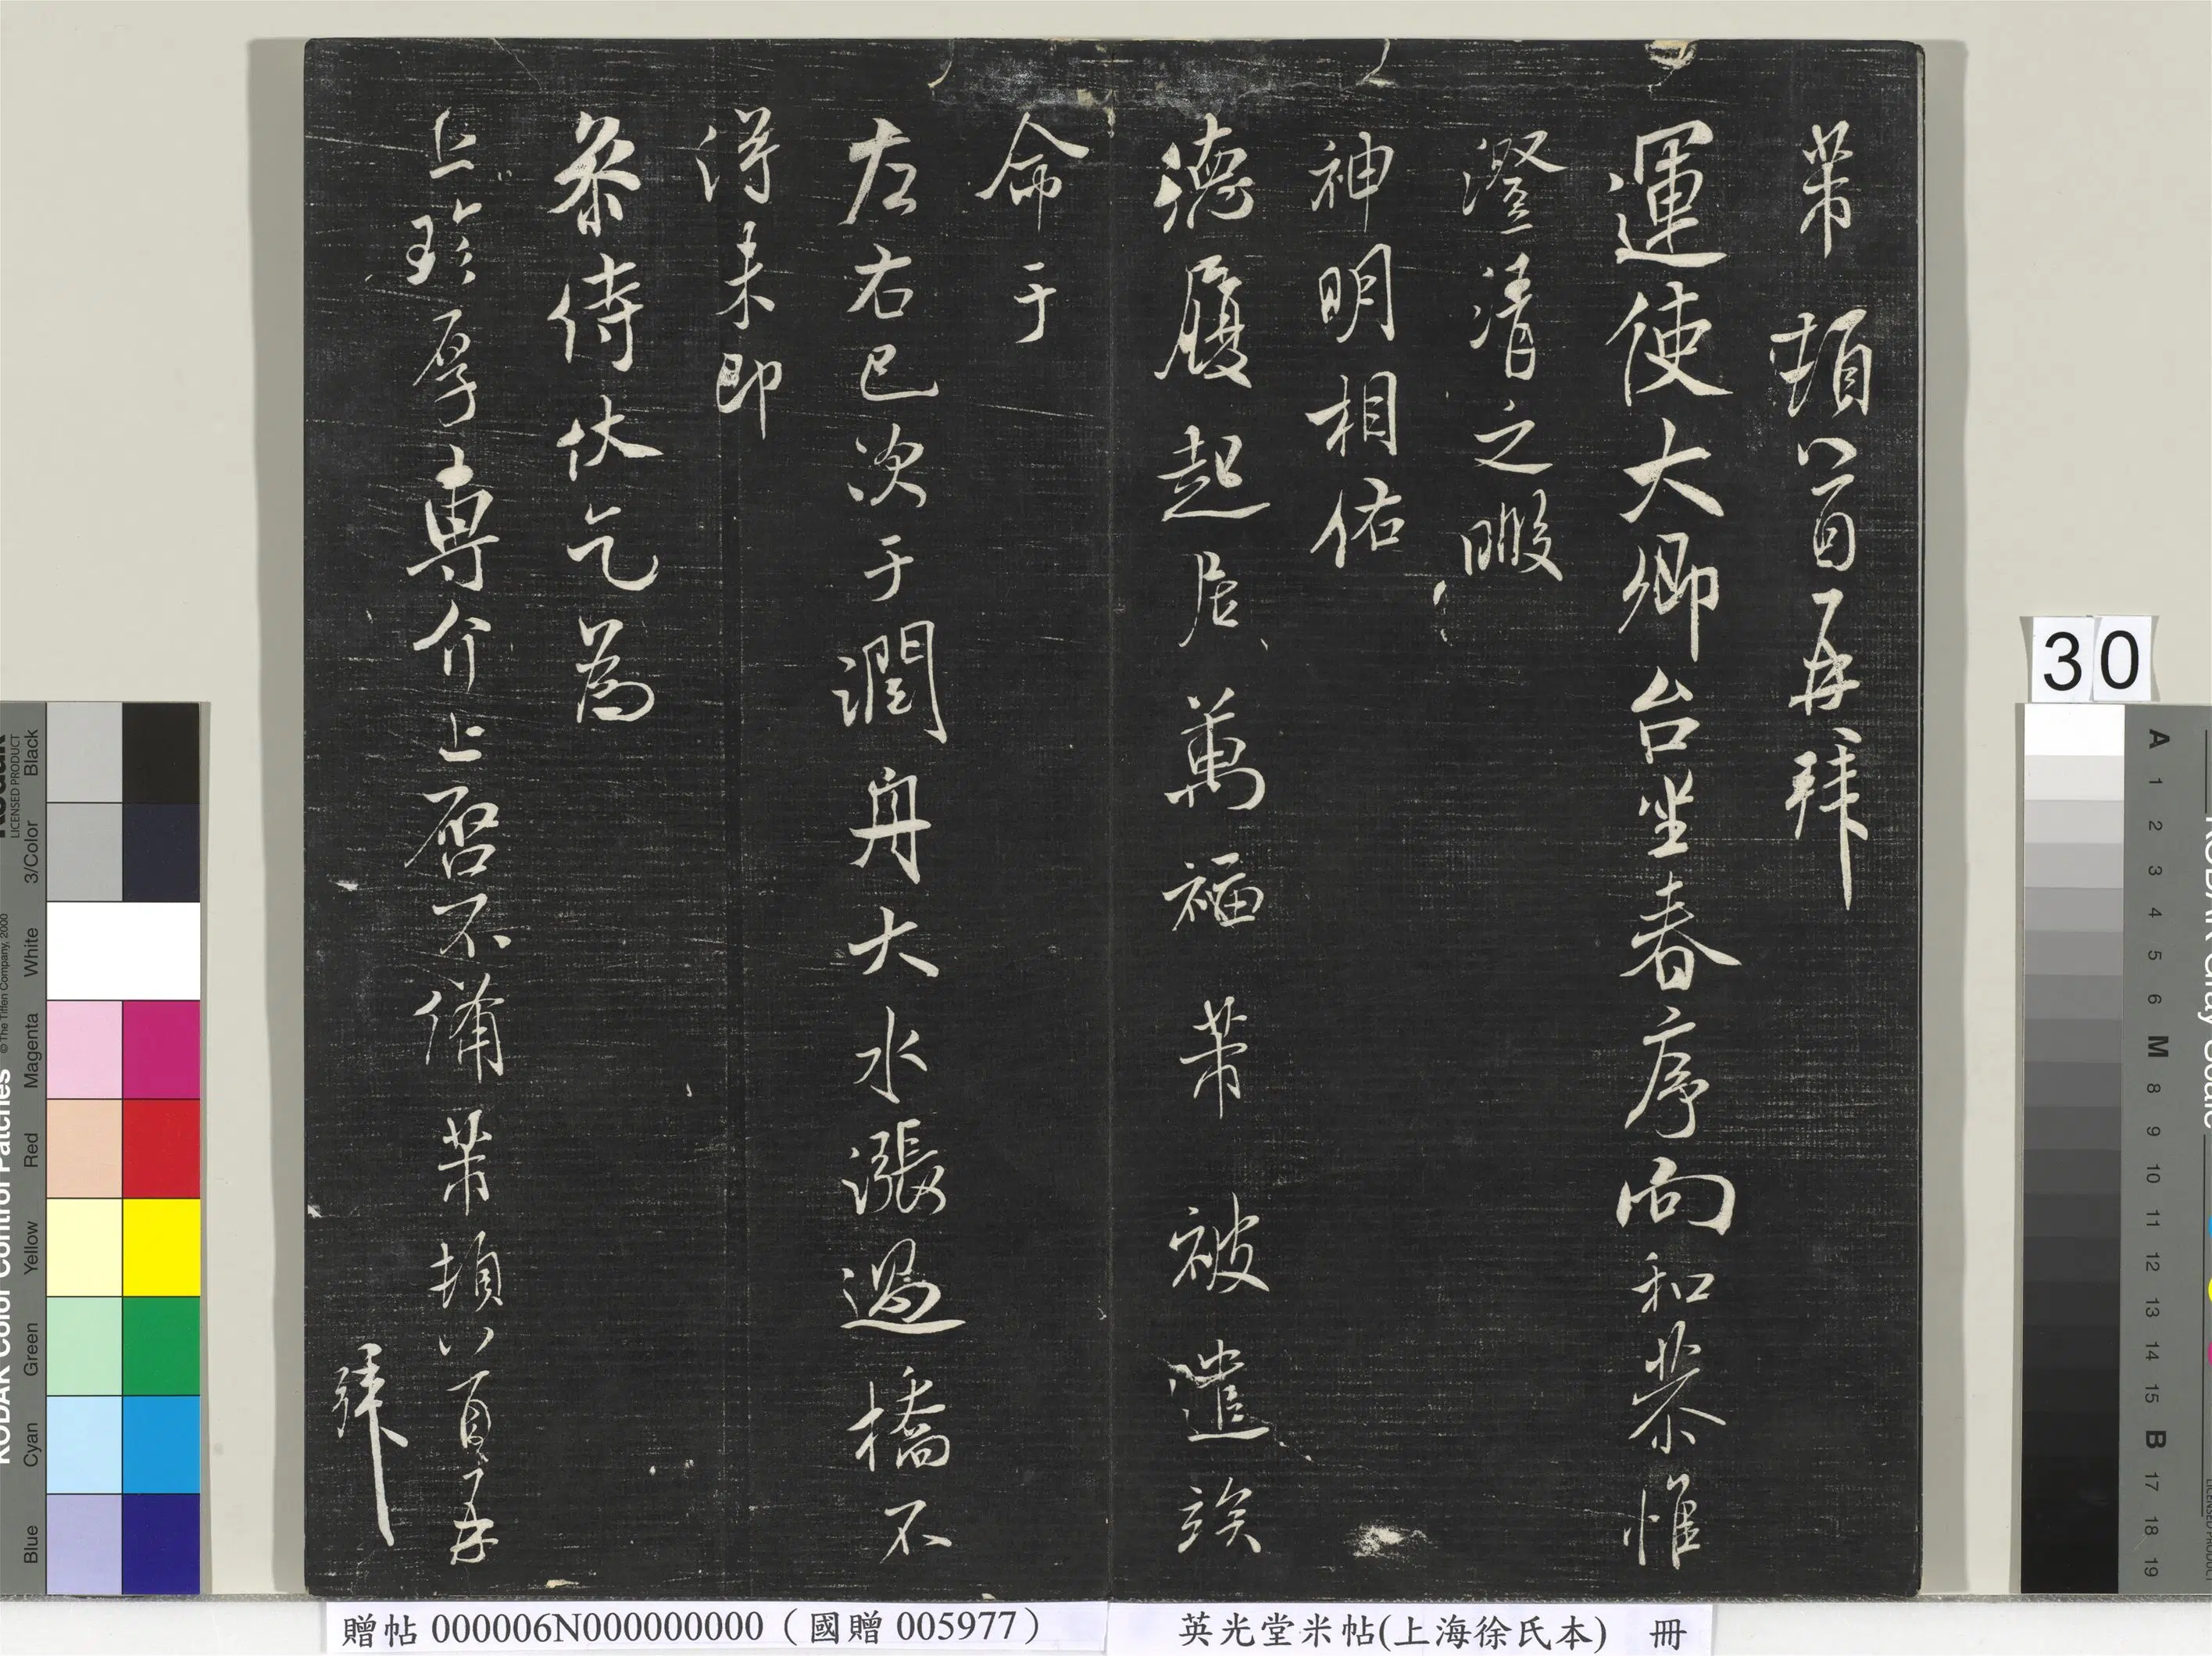 芾頓首再拜
運使大卿台坐春序向和恭惟
澄清之暇
神明相佑
德履起居萬福芾被遣俟
命于
左右已次于潤舟大水漲過橋不
得未即
參侍伏乞為
上珍厚專介上啓不備芾頓首再
拜
30
贈帖 000006N000000000（國贈 005977）
英光堂米帖(上海徐氏本) 冊
KODAK Color Control Patches
© The Tiffen Company, 2000
LICENSED PRODUCT
Black
3/Color
White
Magenta
Red
Yellow
Green
Cyan
Blue
A 1 2 3 4 5 6 M 8 9 10 11 12 13 14 15 B 17 18 19